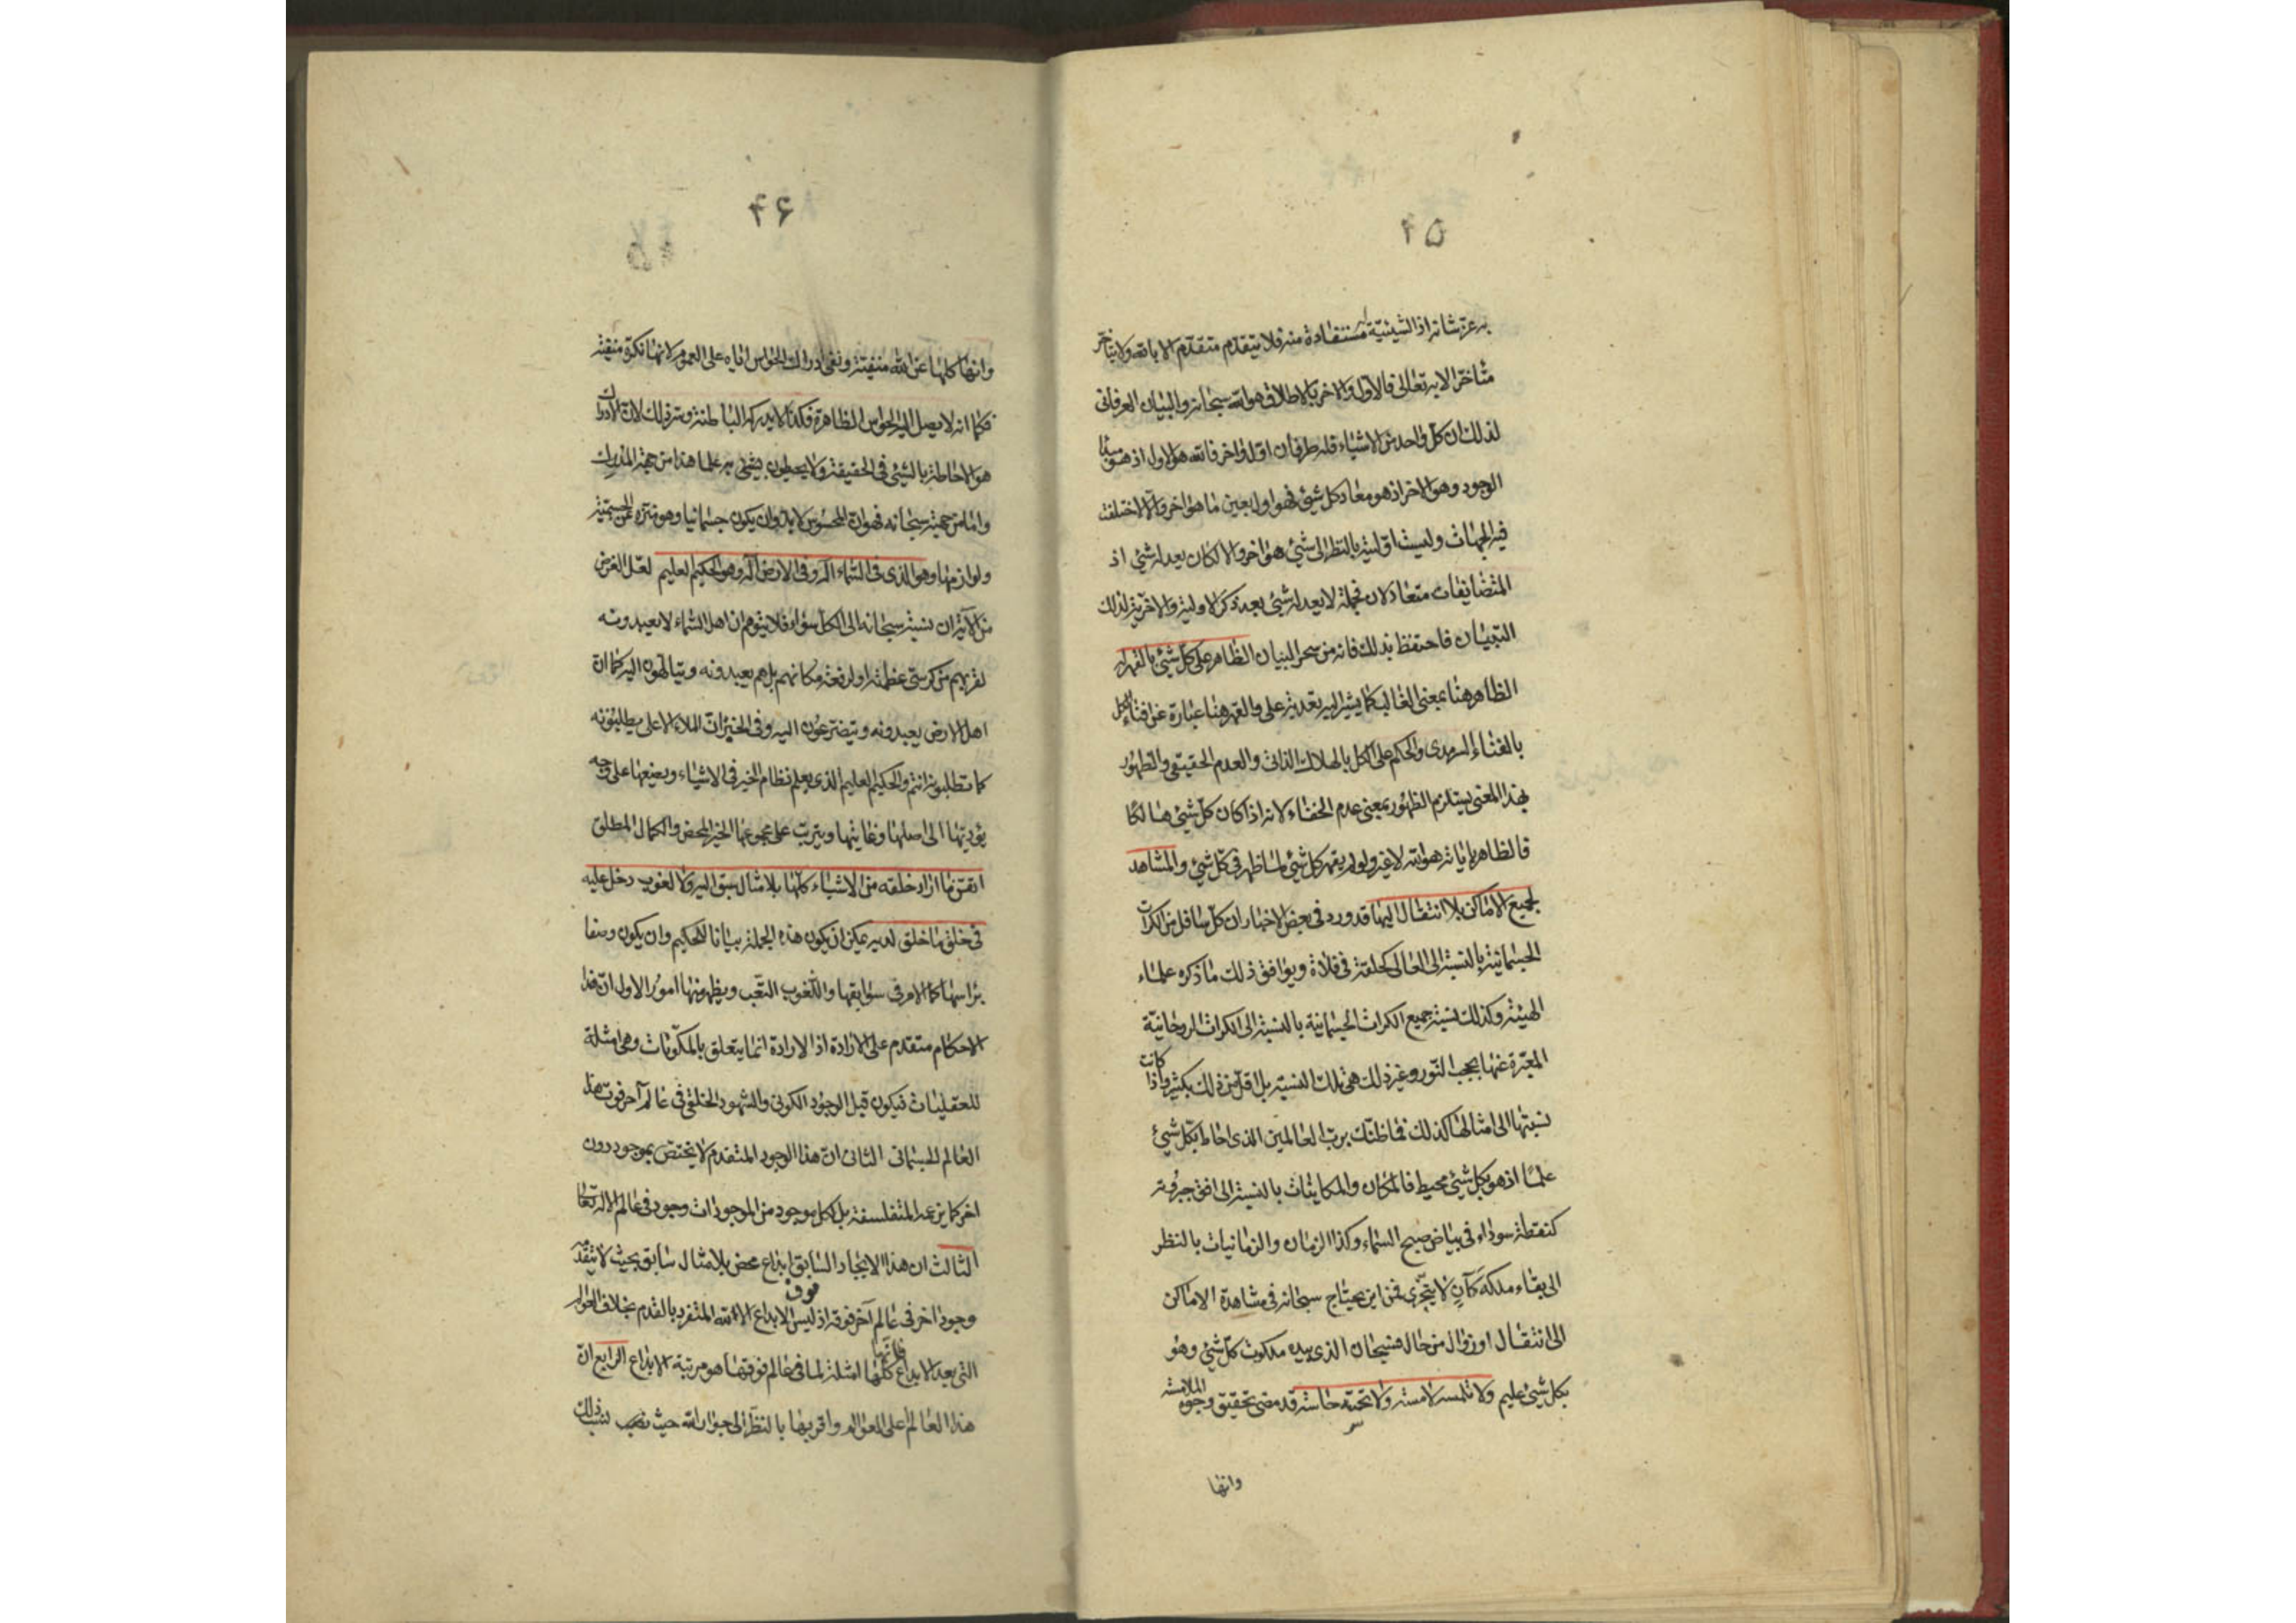 ۴۵
به عز شانه اذ الشيئية مستفادة منه فلا يتقدم متقدم الا بالله ولا يتاخر
متاخر الا به تعالى فالاول والاخر بالاطلاق هو الله سبحانه والبيان العرفانى
لذلك ان كل واحد من الاشياء فله طرفان اول واخر فالله هو الاول اذ هو مبدا
الوجود وهو الاخر اذ هو معاد كل شيئ فهو اول بعين ما هو اخر والا لاختلفت
فيه الجهات وليست اوليته بالنظر الى شيئ هو اخر والا لكان يعد له شيئ اذ
المتضايفات متعادلان فجملة لا يعد له شيئ بعد ذكر الاولية والاخرية لذلك
التبيان فاحتفظ بذلك فانه من سحر البيان الظاهر على كل شيئ بالقهر له
الظاهر هنا بمعنى الغالب كما يشير اليه تعديته على والقهر هنا عبارة عن افناء الكل
بالفناء السرمدى والحكم على الكل بالهلاك الذاتى والعدم الحقيقى والظهور
بهذا المعنى يستلزم الظهور بمعنى عدم الخفاء لانه اذا كان كل شيئ هالكا
فالظاهر باياته هو الله لا غير ولو لم يقهر كل شيئ لما ظهر فى كل شيئ والمشاهد
لجميع الاماكن بلا انتقال اليها قد ورد فى بعض الاخبار ان كل سافل من الكرات
الجسمانية بالنسبة الى العالى كحلقة فى فلاة ويوافق ذلك ما ذكره علماء
الهيئة وكذلك نسبة جميع الكرات الجسمانية بالنسبة الى الكرات الروحانية
المعبرة عنها بحجب النور وغير ذلك هى تلك النسبة بل اقل من ذلك بكثير واذا كانت
نسبتها الى امثالها كذلك فما ظنك برب العالمين الذى احاط بكل شيئ
علما اذ هو بكل شيئ محيط فالمكان والمكانيات بالنسبة الى افق جبروته
كنقطة سوداء فى بياض صبح السماء وكذا الزمان والزمانيات بالنظر
الى بقاء ملكه كآن لا يتجزى فمن اين يحتاج سبحانه فى مشاهدة الاماكن
الى انتقال او زوال من حال فسبحان الذى بيده ملكوت كل شيئ وهو
بكل شيئ عليم ولا تلمسه لامسة ولا تحسه حاسة قد مضى تحقيق وجوه الملامسة
وانها
۴۶
وانها كلها عن الله منفية ونفى ادراك الحواس اياه على العموم لانها نكرة منفية
فكما انه لا يصل اليه الحواس الظاهرة فكذا لا يدركه الباطنة وسر ذلك لان الادراك
هو الاحاطة بالشيئ فى الحقيقة ولا يحيطون بشيئ به علما هذا من جهة المدرك
واما من جهته سبحانه فهو ان المحسوس لا بد وان يكون جسمانيا وهو منزه عن الجسمية
ولوازمها وهو الذى فى السماء اله وفى الارض اله وهو الحكيم العليم لعل الغرض
من الآية ان نسبته سبحانه الى الكل سواء فلا يتوهم ان اهل السماء لا يعبدونه
لقربهم من كرسى عظمته او لرفعة مكانهم بل هم يعبدونه ويتالهون اليه كما ان
اهل الارض يعبدونه ويتضرعون اليه وفى الخبر ان الملاء الاعلى يطلبونه
كما تطلبونه انتم والحكيم العليم الذى يعلم نظام الخير فى الاشياء ويضعها على وجه
يؤديها الى اصلها وغايتها ويترتب على مجموعها الخير المحض والكمال المطلق
اتقن ما اراد خلقه من الاشياء كلها بلا مثال سبق اليه ولا لغوب دخل عليه
فى خلق ما خلق لديه يمكن ان يكون هذه الجملة بيانا للحكيم وان يكون وصفا
براسها كما الامر فى سوابقها واللغوب التعب ويظهر منها امور الاول ان هذا
الاحكام متقدم على الارادة اذ الارادة انما يتعلق بالمكونات وهى امثلة
للعقليات فيكون قبل الوجود الكونى والشهود الخلقى فى عالم آخر فوق هذا
العالم الجسمانى الثانى ان هذا الوجود المتقدم لا يختص بموجود دون
اخر كما يزعمه المتفلسفة بل لكل موجود من الموجودات وجود فى عالم الاله تعالى
الثالث ان هذا الايجاد السابق ابداع محض بلا مثال سابق بحيث لا يتقدم
وجود اخر فى عالم آخر فوقه اذ ليس فوق الابداع الا الله المتفرد بالقدم بخلاف العوالم
التى بعد الابداع فانها كلها امثلة لما فى عالم فوقها هو مرتبة الابداع الرابع ان
هذا العالم اعلى العوالم واقربها بالنظر الى جوار الله حيث نصب لنسب ذلك